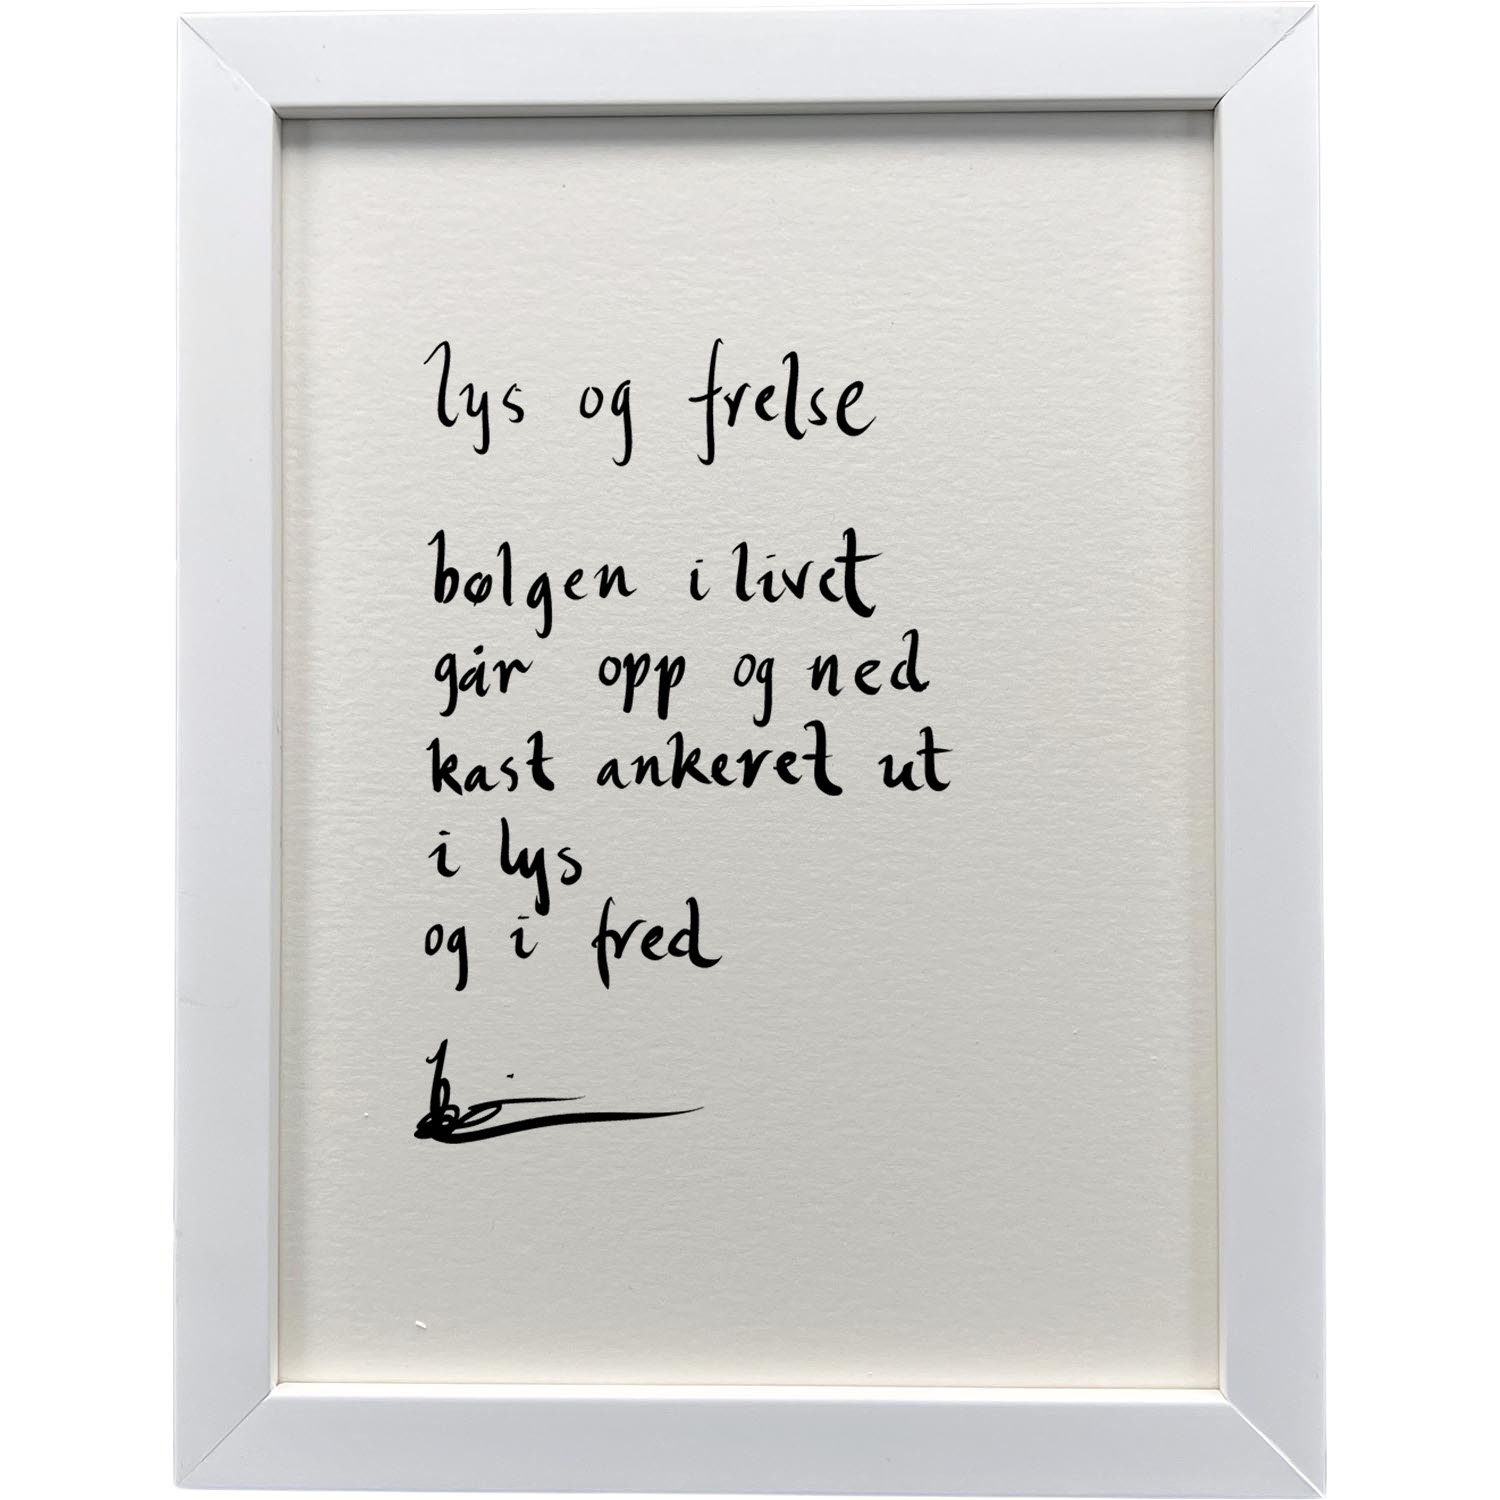 lys og frelse
bølgen i livet
går opp og ned
kast ankeret ut
i lys
og i fred